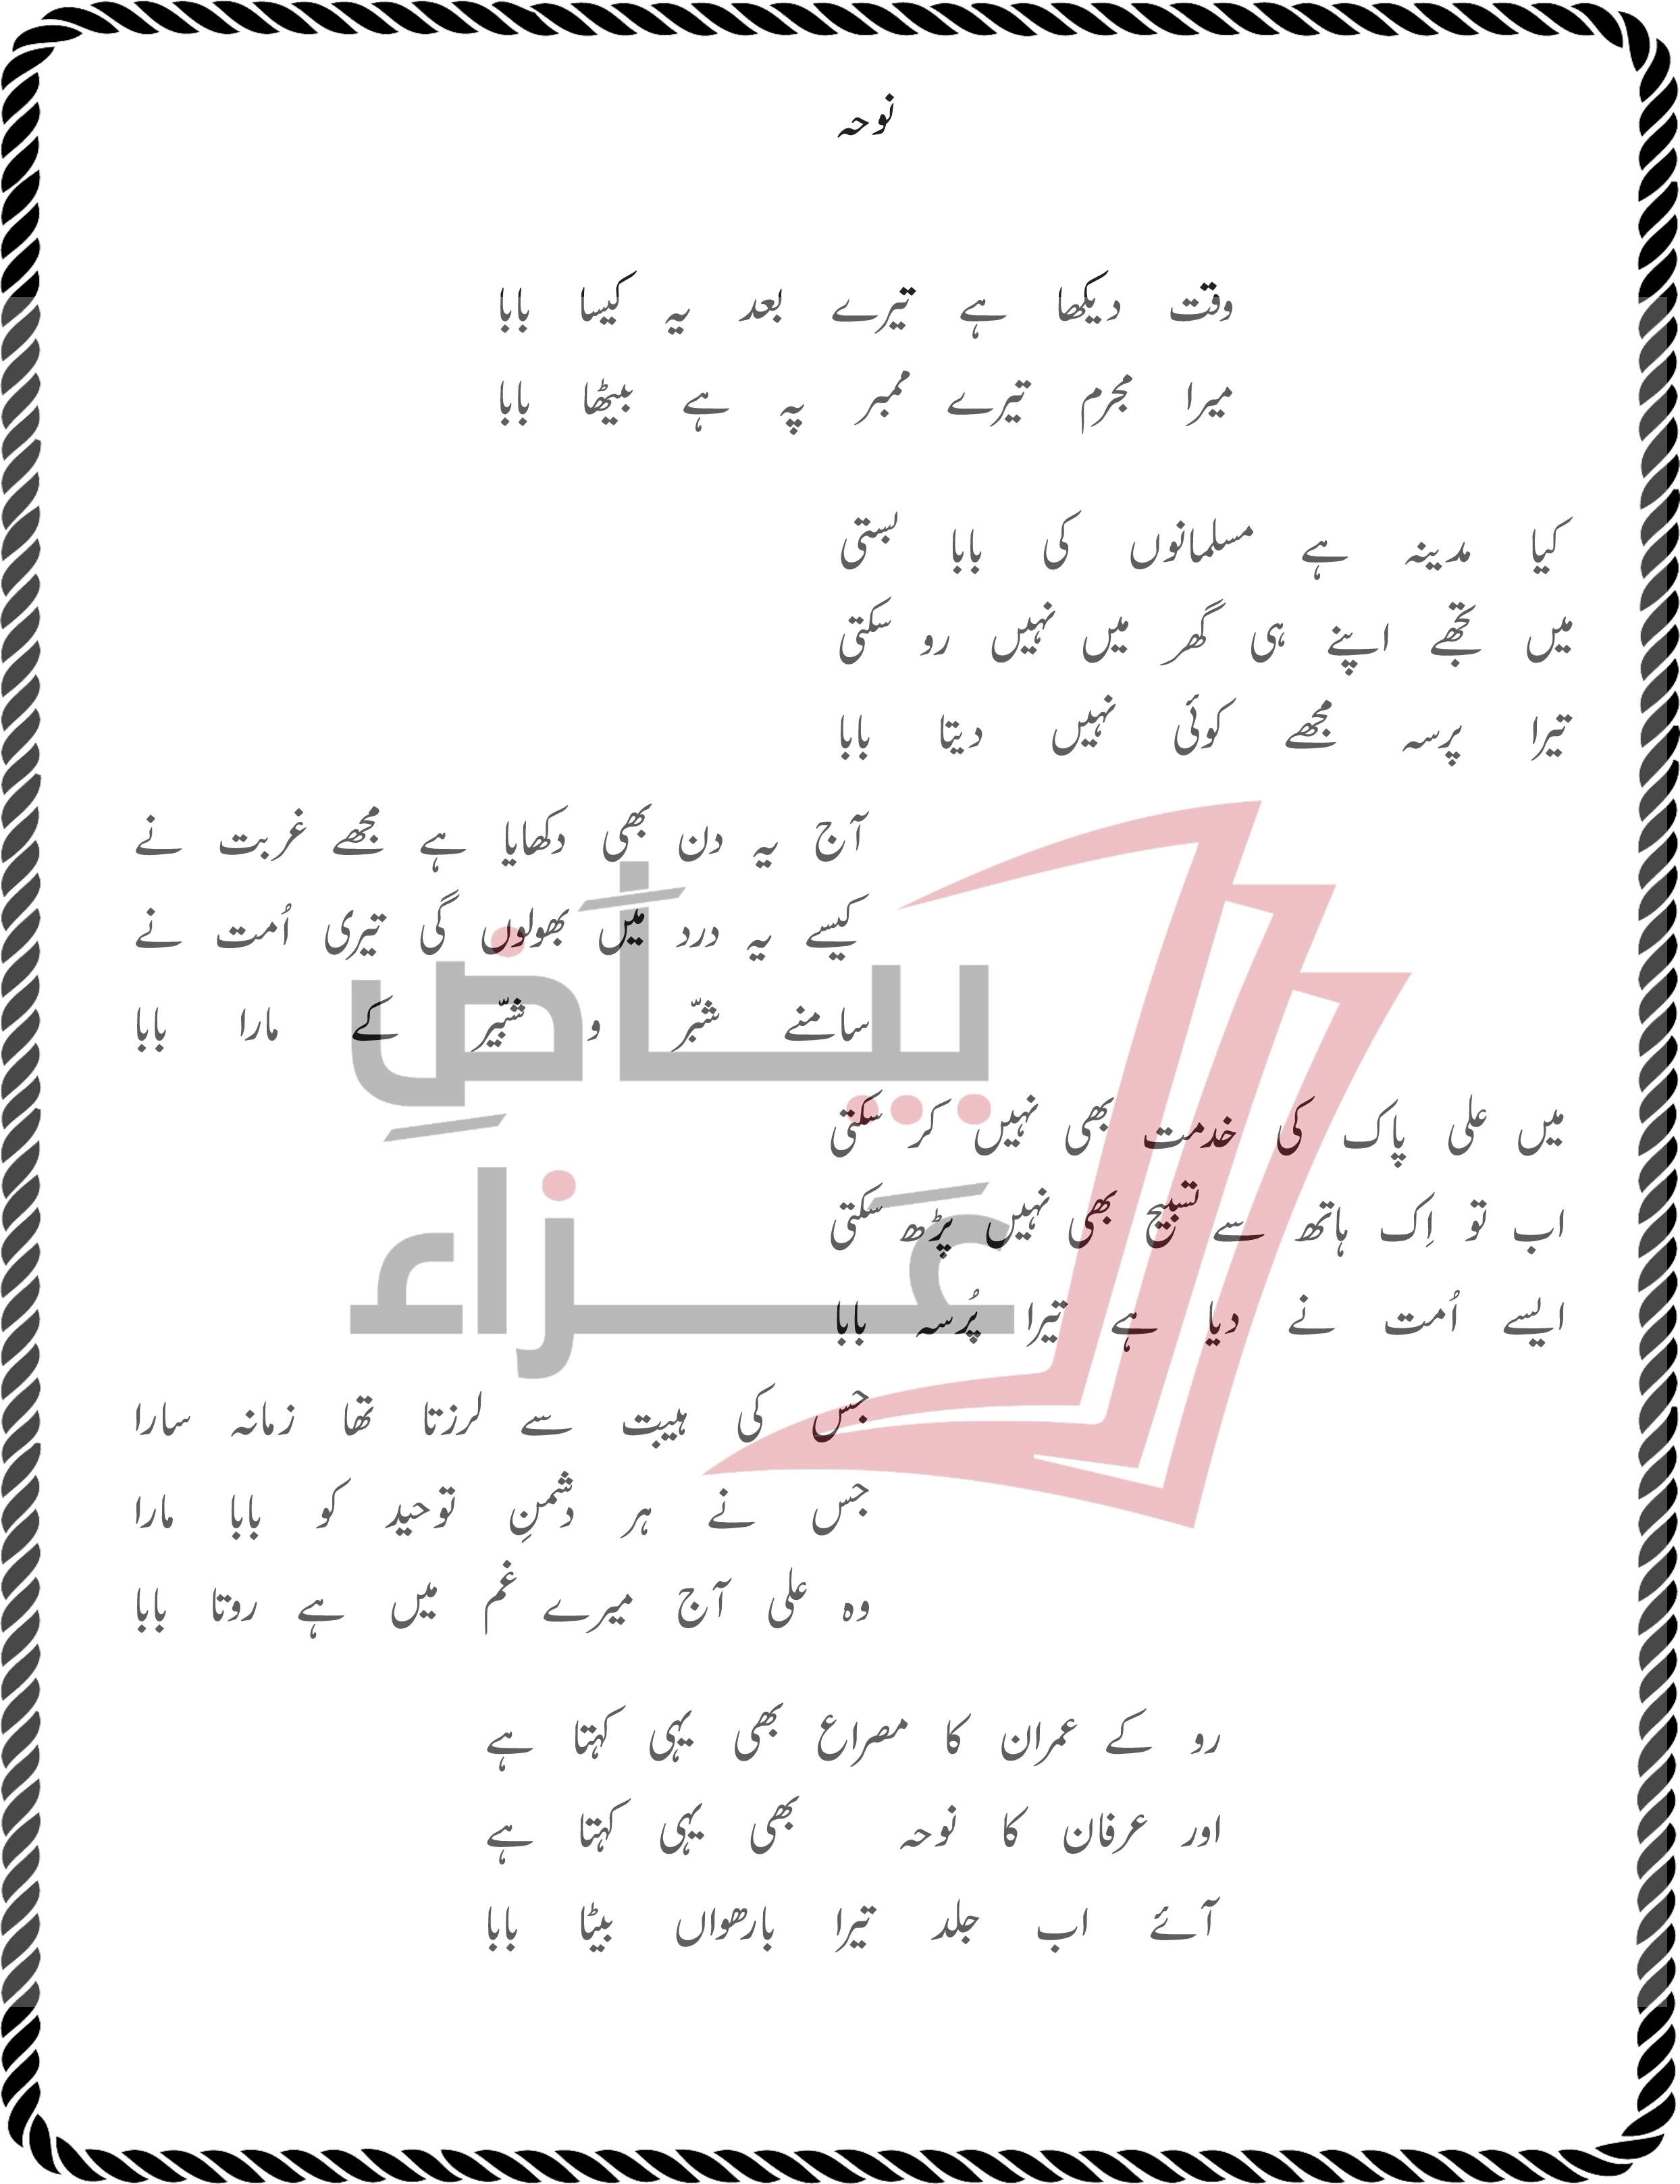 نوحہ
وقت دیکھا ہے تیرے بعد یہ کیسا بابا
میرا مجرم تیرے ممبر پہ ہے بیٹھا بابا
کیا مدینہ ہے مسلمانوں کی بابا بستی
میں تجھے اپنے ہی گھر میں نہیں رو سکتی
تیرا پرسہ مجھے کوئی نہیں دیتا بابا
آج یہ دن بھی دکھایا ہے مجھے غربت نے
کیسے یہ درد میں بھولوں گی تیری اُمت نے
سامنے شبّر و شبّیر کے مارا بابا
میں علی پاک کی خدمت بھی نہیں کر سکتی
اب تو اِک ہاتھ سے تسبیح بھی نہیں پڑھ سکتی
ایسے اُمت نے دیا ہے تیرا پُرسہ بابا
جس کی ہیبت سے لرزتا تھا زمانہ سارا
جس نے ہر دشمنِ توحید کو بابا مارا
وہ علی آج میرے غم میں ہے روتا بابا
رو کے عمران کا مصراع بھی یہی کہتا ہے
اور عرفان کا نوحہ بھی یہی کہتا ہے
آئے اب جلد تیرا بارھواں بیٹا بابا
بیاضِ
عَزاء